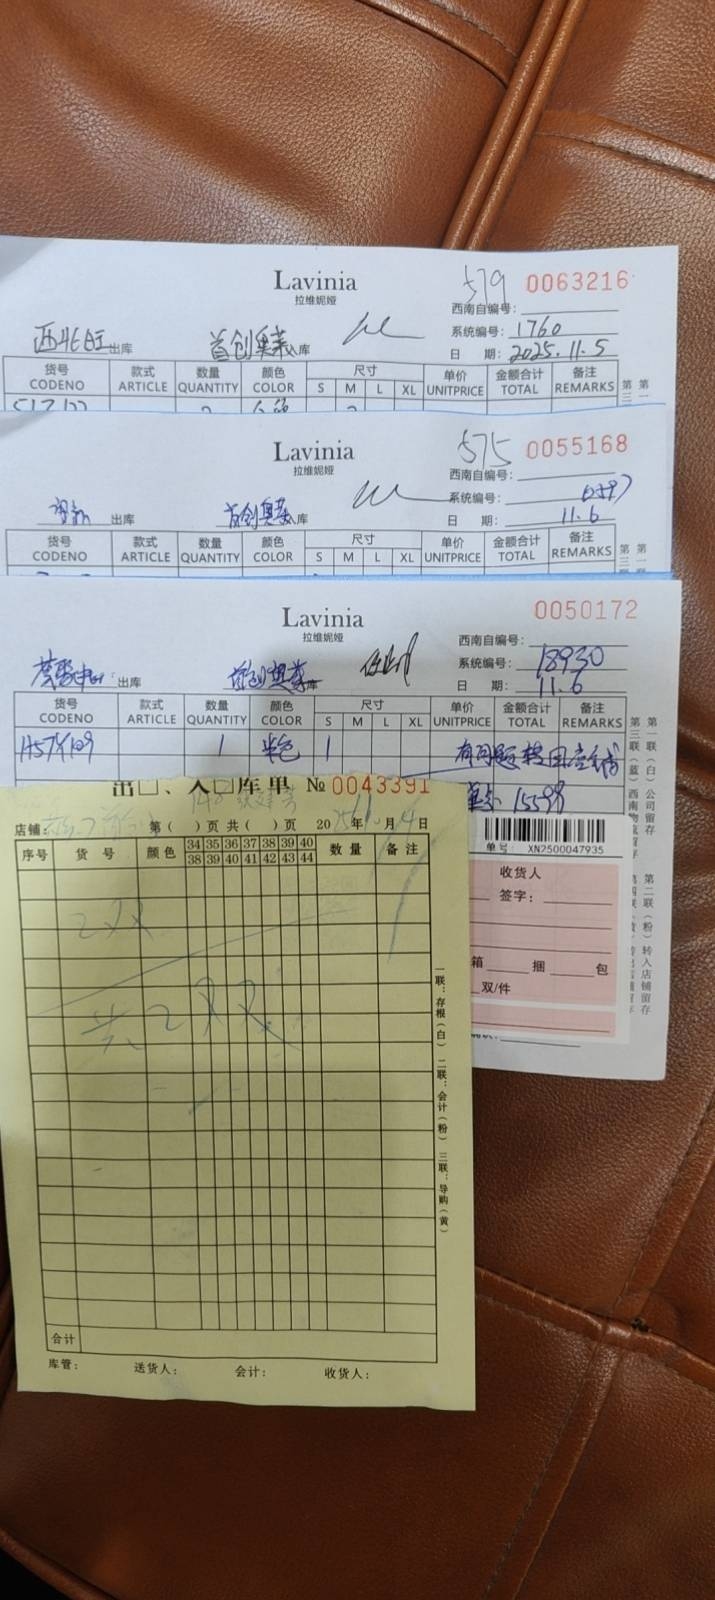 Lavinia
拉维妮娅
579 0063216
西南自编号:
西北旺出库 首创奥莱入库
系统编号: 1760
日 期: 2025.11.5
货号 款式 数量 颜色 尺寸 单价 金额合计 备注
CODENO ARTICLE QUANTITY COLOR S M L XL UNITPRICE TOTAL REMARKS
Lavinia
拉维妮娅
575 0055168
西南自编号:
系统编号:
出库 首创奥莱入库
日 期: 11.6
货号 款式 数量 颜色 尺寸 单价 金额合计 备注
CODENO ARTICLE QUANTITY COLOR S M L XL UNITPRICE TOTAL REMARKS
Lavinia
拉维妮娅
0050172
西南自编号:
系统编号: 18930
出库 首创奥莱 库
日 期: 11.6
货号 款式 数量 颜色 尺寸 单价 金额合计 备注
CODENO ARTICLE QUANTITY COLOR S M L XL UNITPRICE TOTAL REMARKS
1 米色 1 有问题转回
第一联(白)公司留存
第二联(粉)转入店铺留存
第三联(蓝)西南物流留存
单号: XN2500047935
收货人
签字:
箱 捆 包
双/件
出□、入□库单 № 0043391
店铺: 第( )页 共( )页 20 年 月 日
序号 货号 颜色 34 35 36 37 38 39 40 数量 备注
38 39 40 41 42 43 44
2双
共2双
一联:存根(白) 二联:会计(粉) 三联:导购(黄)
合计
库管: 送货人: 会计: 收货人: